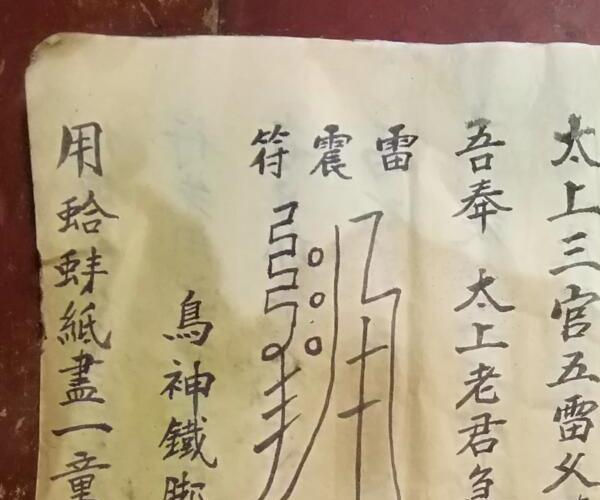 太上三官五雷
吾奉 太上老君急
雷震符
鳥神鐵脚
用蛤蚌紙畫一童